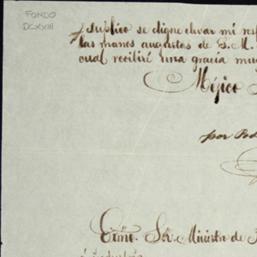 FONDO
DCXXIII
Suplico se digne elevar mi
las manos augustas de S. M.
cual recibiré una gracia
Méjico
por
Exmo. Sr. Ministro de